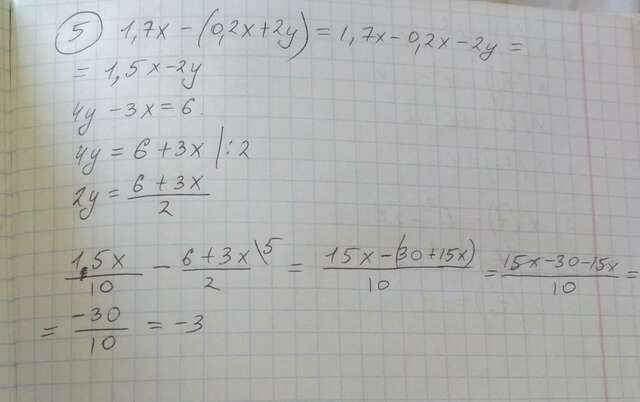 5 1,7x - (0,2x+2y) = 1,7x - 0,2x - 2y =
= 1,5x - 2y
4y - 3x = 6.
4y = 6 + 3x |: 2
2y = \frac{6 + 3x}{2}
\frac{15x}{10} - \frac{6 + 3x}{2} \5 = \frac{15x - (30 + 15x)}{10} = \frac{15x - 30 - 15x}{10} =
= \frac{-30}{10} = -3